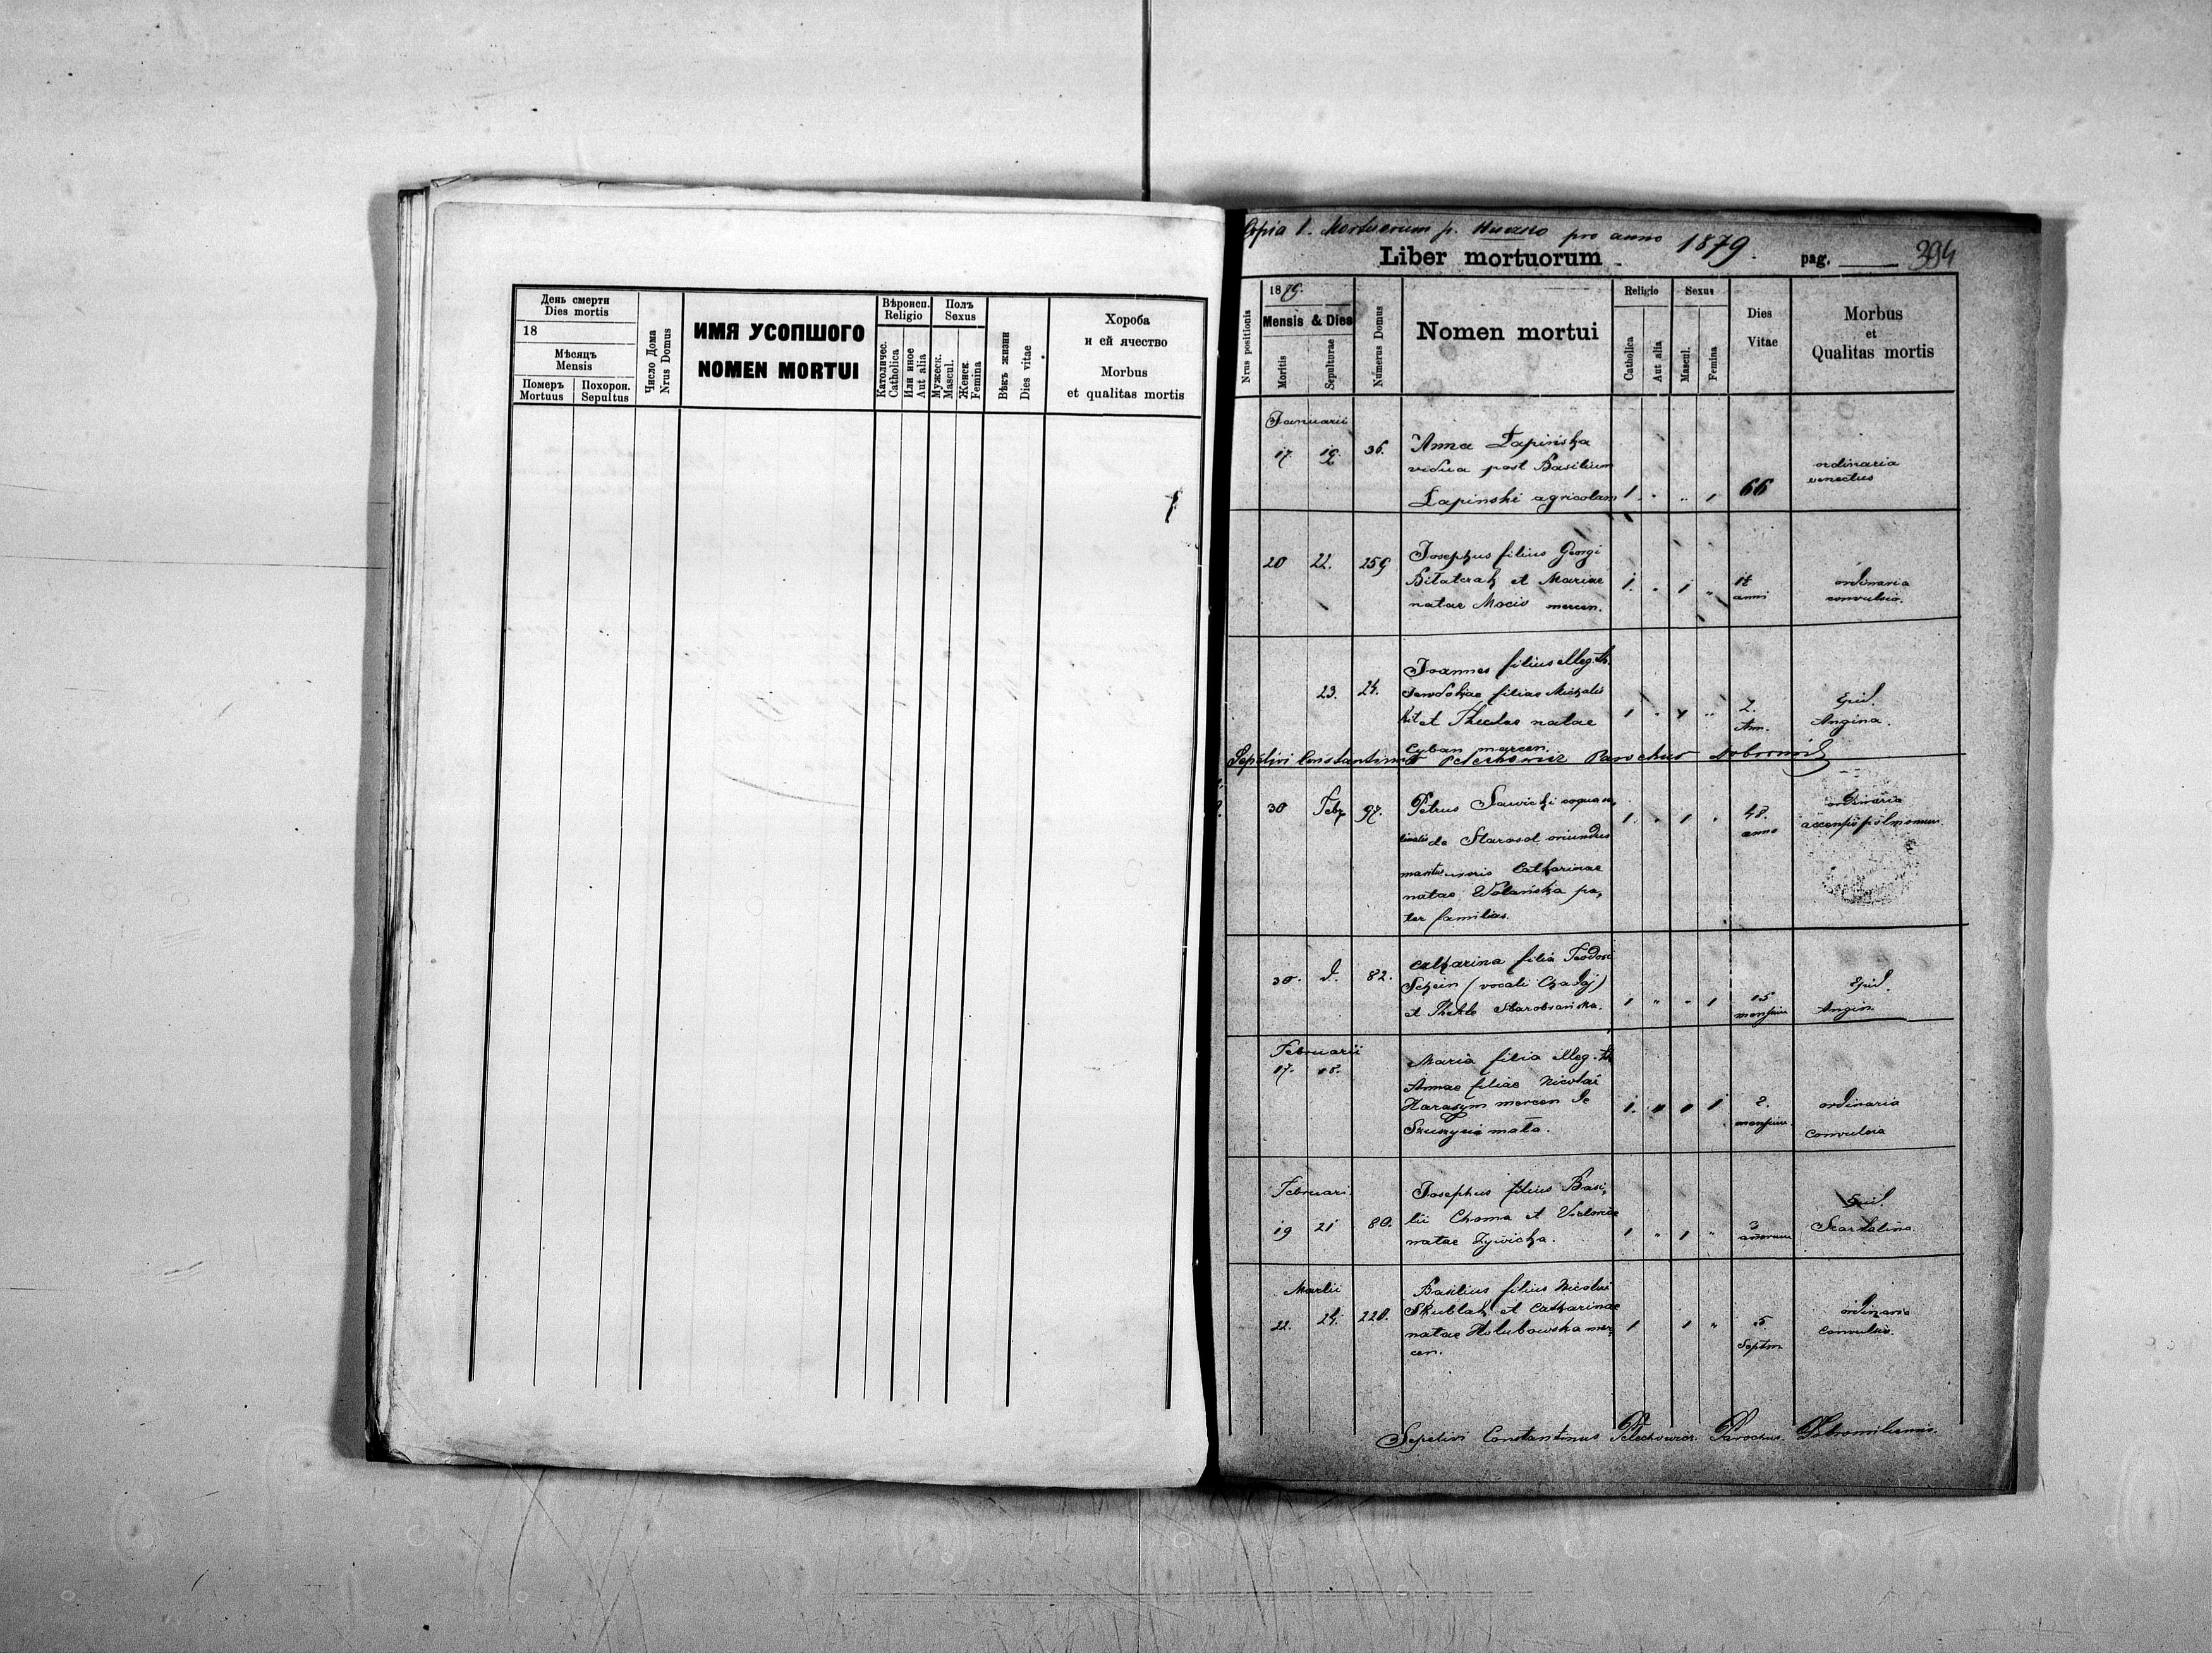 День смерти
Dies mortis
18
Мѣсяць
Mensis
Померъ
Mortuus
Похорон.
Sepultus
Число Дома
Nrus Domus
ИМЯ УСОПШОГО
NOMEN MORTUI
Вѣроисп.
Religio
Католичес.
Catholica
Или инное
Aut alia
Полъ
Sexus
Мужеск.
Mascul.
Женск.
Femina.
Вѣкъ жизни
Dies vitae
Хороба
и ей ячество
Morbus
et qualitas mortis
Copia l. Mortuorum p. Huczko pro anno 1879.
Liber mortuorum
pag. 394
Nrus positionis
1879.
Mensis & Dies
Mortis
Sepulturae
Numerus Domus
Nomen mortui
Religio
Catholica
Aut alia
Sexus
Mascul.
Femina
Dies
Vitae
Morbus
et
Qualitas mortis
Januarii
17. 19. 36. Anna Łapińska
vidua post Basilium
Łapinski agricolam 1 " " 1 66 ordinaria
20 22. 259 Josephus filius Georgi
et Mariae
natae Mocio mercen. 1. " 1 " anni ordinaria
convulsio.
Joannes filius illeg. th.
23. 24. filiae Michalis
et Theclae natae 1 " 1 " 2. Ann. Epid.
Angina.
Cyban mercen.
Sepelivi Constantinus Pelechowicz Parochus
30 Feb 97. Petrus Sawicki
de Starasol oriundus 1. " 1 " 48. anno ordinaria
uxoris Catharinae
natae Wolańska pa,
ter familias.
30. d. 82. Catharina filia Teodosi
Schein (vocati Chadaj)
et 1 " " 1 15 mensium Epid.
Angin.
Februarii
17. 18. Maria filia illeg. th.
Annae filiae Nicolai
Harasym mercen de 1. " " 1 2. mensium ordinaria
convulsia
nata.
Februari.
19 21 80. Josephus filius Basi,
lii Choma et Victoriae
natae Zywicka. 1 " 1 " 3 annorum Epid.
Scarlatina.
Martii
22. 24. 220. Basilius filius Nicolai
Skublak et Catharinae
natae Holubowska mer, 1 1 " 5 Septm ordinaria
convulsio.
cen.
Sepelivi Constantinus Pelechowicz Parochus Dobromiliensis.